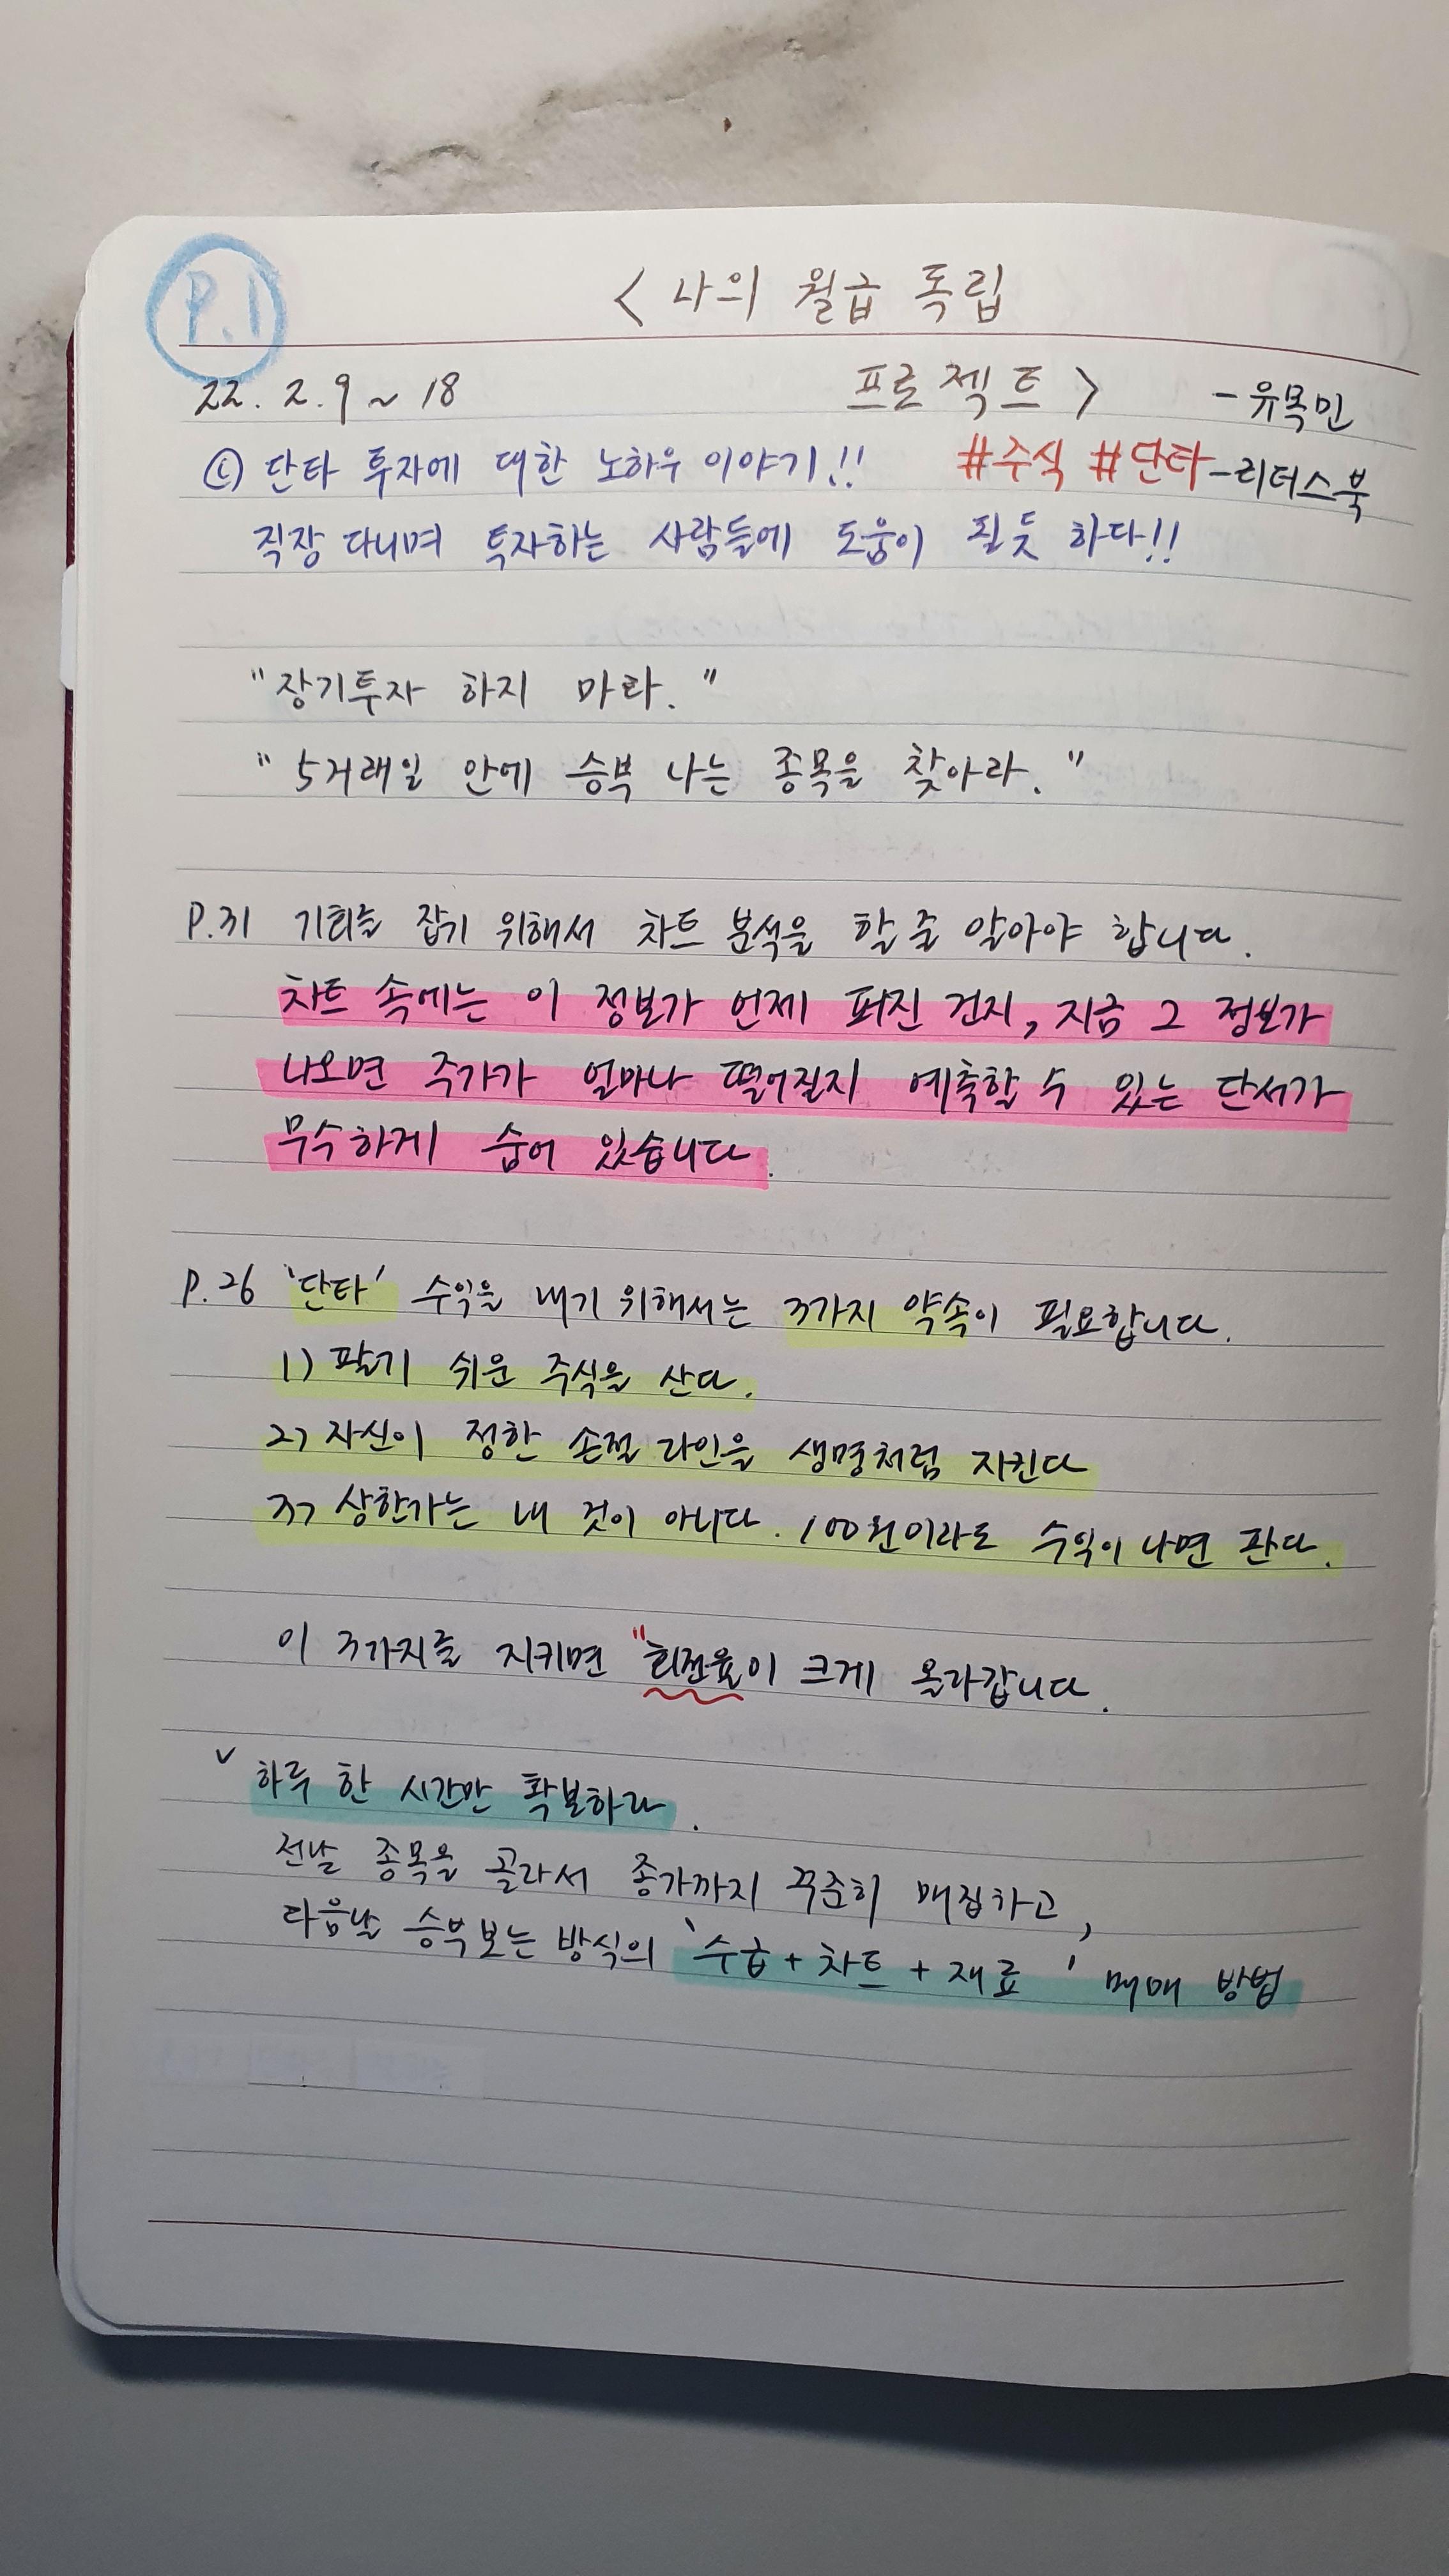 P.1
< 나의 월급 독립
22. 2. 9 ~ 18 프로젝트 > - 유목민
ⓒ 단타 투자에 대한 노하우 이야기!! #주식 #단타 -리더스북
직장 다니며 투자하는 사람들에 도움이 될듯 하다!!
"장기투자 하지 마라."
"5거래일 안에 승부 나는 종목을 찾아라."
P.31 기회를 잡기 위해서 차트 분석을 할 줄 알아야 합니다.
차트 속에는 이 정보가 언제 퍼진 건지, 지금 그 정보가
나오면 주가가 얼마나 떨어질지 예측할 수 있는 단서가
무수하게 숨어 있습니다.
P.26 '단타' 수익을 내기 위해서는 3가지 약속이 필요합니다.
1) 팔기 쉬운 주식을 산다.
2) 자신이 정한 손절 라인을 생명처럼 지킨다
3) 상한가는 내 것이 아니다. 100원이라도 수익이 나면 판다.
이 3가지를 지키면 "회전율이 크게 올라갑니다.
v 하루 한 시간만 확보하라.
전날 종목을 골라서 종가까지 꾸준히 매집하고,
다음날 승부보는 방식의 '수급 + 차트 + 재료' 매매 방법